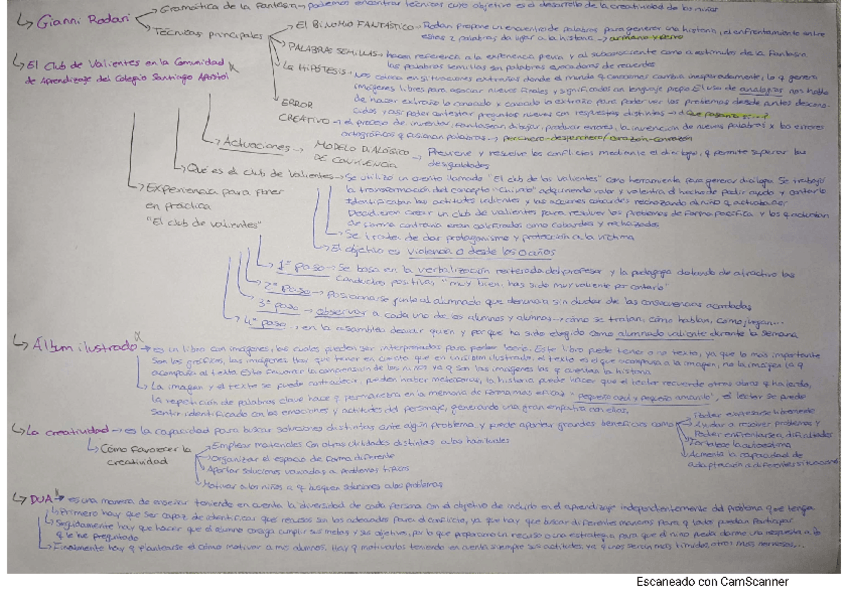 Gianni Rodari
Gramática de la Fantasía → podemos encontrar técnicas cuyo objetivo es el desarrollo de la creatividad de los niños
Técnicas principales
El BINOMIO FANTÁSTICO → Rodari propone un encuentro de palabras para generar una historia, el enfrentamiento entre
esas 2 palabras da lugar a la historia → armario y perro
PALABRAS SEMILLAS → hacen referencia a la experiencia previa y al subconsciente como estímulos de la fantasía.
las palabras semillas son palabras evocadoras de recuerdos
La HIPÓTESIS → nos coloca en situaciones extrañas donde el mundo que conocemos cambia inesperadamente, lo q genera
imágenes libres para asociar nuevos finales y significados en lenguaje propio. El uso de analogías
de hacer extraño lo conocido y conocido lo extraño para poder ver los problemas desde antes
y así poder contestar preguntas nuevas con respuestas distintas → ¿Qué pasaría si...?
ERROR CREATIVO → el proceso de inventar, fantasear, dibujar, producir errores, la invención de nuevas palabras x los errores
ortográficos q ocasionan palabras → perchero-desperchero / corazón-
El Club de Valientes en la Comunidad
de Aprendizaje del Colegio Santiago Apóstol
Actuaciones → MODELO DIALÓGICO
DE CONVIVENCIA → Previene y resuelve los conflictos mediante el diálogo, q permite superar las
desigualdades
Qué es el club de valientes → Se utilizó un cuento llamado "El club de los valientes" como herramienta para generar diálogo. Se trabajó
la transformación del concepto "chivato" adquiriendo valor y valentía el hecho de pedir ayuda y contarlo
Identificaban las actitudes valientes y las acciones cobardes rechazando al niño q actuaba
Decidieron crear un club de valientes para resolver los problemas de forma pacífica y los q actuaban
de forma contraria eran calificados como cobardes y rechazados
Se trata de dar protagonismo y protección a la víctima
El objetivo es violencia 0 desde los 0 años
Experiencia para poner
en práctica
"El club de valientes"
1º paso → Se basa en la verbalización reiterada del profesor y la pedagogía dotando de atractivo las
conductas positivas "muy bien, has sido muy valiente por contarlo"
2º paso → posicionarse junto al alumnado que denuncia sin dudar de las consecuencias acordadas
3º paso → observar a cada uno de los alumnos y alumnas → cómo se tratan, cómo hablan, cómo juegan...
4º paso, en la asamblea decidir quien y por qué ha sido elegido como alumnado valiente durante la semana
Álbum ilustrado → es un libro con imágenes, las cuales pueden ser interpretadas para poder leerlo. Este libro puede tener o no texto, ya que lo más importante
son las gráficas, las imágenes. Hay que tener en cuenta que en un álbum ilustrado, el texto es el que acompaña a la imagen, no la imagen la q
acompaña al texto. Esto favorece la comprensión de los niños ya q son las imágenes las q cuentan la historia
La imagen y el texto se puede contradecir, pueden haber metáforas, la historia puede hacer que el lector recuerde otras obras q ha leído,
la repetición de palabras clave hace q permanezca en la memoria de forma más eficaz "pequeño azul y pequeño amarillo", el lector se puede
sentir identificado con las emociones y actitudes del personaje, generando una gran empatía con ellos.
La creatividad → es la capacidad para buscar soluciones distintas ante algún problema y puede aportar grandes beneficios como
Poder expresarse libremente
Ayudar a resolver problemas y
Poder enfrentarse a dificultades
Fortalece la autoestima
Aumenta la capacidad de
adaptación a diferentes situaciones
Cómo favorecer la
creatividad
Emplear materiales con otras utilidades distintas a las habituales
Organizar el espacio de forma diferente
Aportar soluciones variadas a problemas típicos
Motivar a los niños a q busquen soluciones a los problemas
DUA → es una manera de enseñar teniendo en cuenta la diversidad de cada persona con el objetivo de incluirlo en el aprendizaje independientemente del problema que tenga
Primero hay que ser capaz de identificar que recursos son los adecuados para dar inicio, ya que hay que buscar diferentes maneras para q todos puedan participar
Seguidamente hay que hacer que el alumno consiga cumplir sus metas y sus objetivos, por lo que proporciono un recurso o una estrategia para que el niño pueda darme una respuesta a lo
q le he preguntado
Finalmente hay q plantearse el cómo motivar a mis alumnos. Hay q motivarlos teniendo en cuenta siempre sus actitudes, ya q unos serán más tímidos, otros más nerviosos...
Escaneado con CamScanner